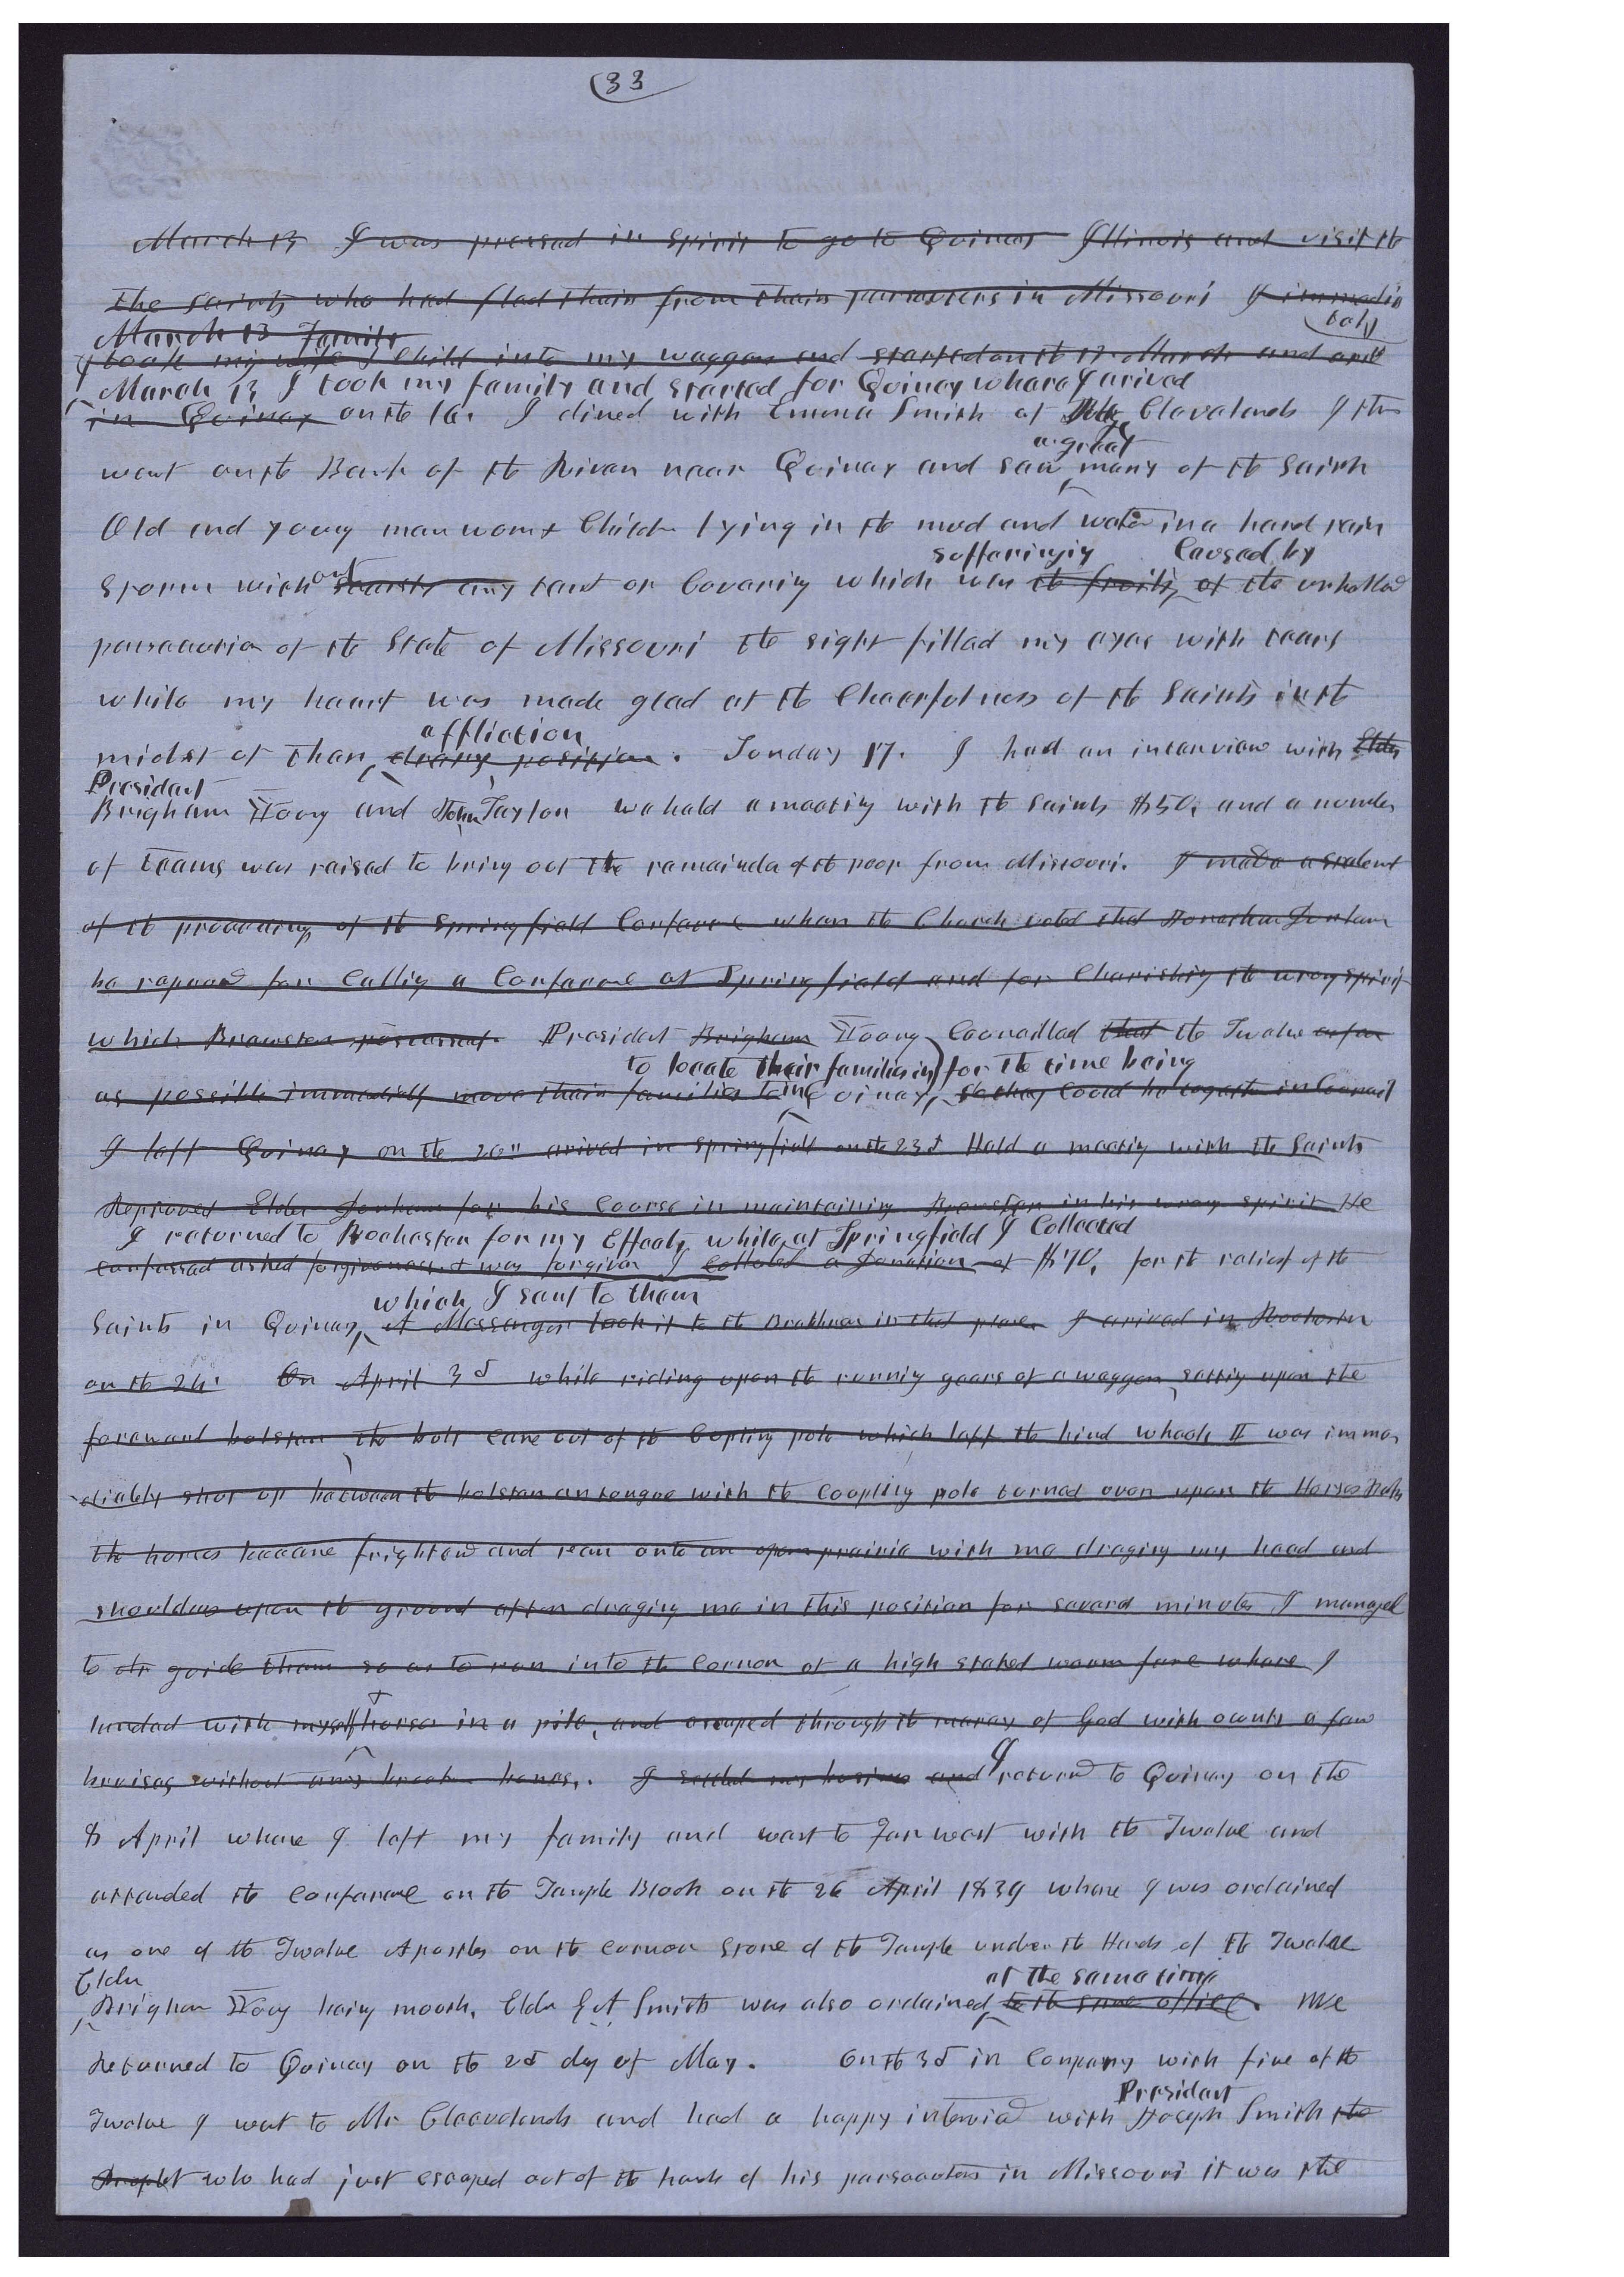 (33
March 13 I was pressed in spirit to go to Quincy Illinois and visit the
the saints who had fled thair from thair persecuters in Missouri I immedia
tely
March 13 Family
I took my wife & Child into my waggon and started on the 13 March and arived
March 13 I took my family and started for Quincy whare I arived
in Quincy on the 16. I dined with Emma Smith at Judge Clevelands I then
a great
went on the Bank of the River near Quincy and saw many of the Saints
Old and young men women & Childrn lying in the mud and water in a hard rain
suffering caused by
out
storm with scarsly any tent or Covering which was the fruits of the unhallowed
persecution of the State of Missouri the sight filled my eyes with tears
while my heart was made glad at the Cheerfulness of the Saints in the
affliction
midst of thair dreary position. Sunday 17. I had an interview with Elder
President
Brigham Young and John Taylor we held a meeting with the saints $50, and a number
of teams was raised to bring out the remainder of the poor from Missouri. I made a statement
of the proceedings of the Springfield Conference when the Church voted that Jonathan Dunham
be reproved for Calling a Conference at Springfield and for Cherishing the wrong spirit
which Brewster possessed. President Brigham Young Councilled that the Twelve as far
to locate their families in for the time being
as possible immediately move thair families to in Quincy, so they could be together in Council
I left Quincy on the 20th arived in Springfield on the 23d Held a meeting with the Saints
Reproved Elder Dunham for his Course in maintaining Brewster in his wrong spirit He
I returned to Rochester for my Effects, while at Springfield I Collected
confessed asked forgiveness & was forgiven I collected a Donation of $70, for the relief of the
which I sent to them
Saints in Quincy, A Messenger took it to the Brethren in that place. I arived in Rochester
on the 24. On April 3d while riding upon the running gears of a waggon, setting upon the
foreward bolster the bolt came out of the Coupling pole which left the hind wheels I was imme
diately shot up between the bolster an tongue with the Coupling pole turned over upon the Horses Backs
the horses became frightend and ran onto an open prairie with me draging my head and
shoulders upon the ground after draging me in this position for several minutes I managed
to dr guide them so as to run into the Corner of a high staked worm fence whare I
landed with myself & horses in a pile, and escaped through the mercy of God with ownly a few
bruises without any broken bones. I settled my business and I returnd to Quincy on the
8 April whare I left my family and went to Far west with the Twelve and
attended the conference on the Temple Block on the 26 April 1839 whare I was ordained
as one of the Twelve Apostles on the corner stone of the Temple under the Hands of the Twelve
Elder at the same time
Brigham Young being mouth, Elder G A Smith was also ordained to the same office. We
Returned to Quincy on the 2d day of May. On the 3d in Company with five of the
President
Twelve I went to Mr Cleavelands and had a happy interview with Joseph Smith the
Prophet who had just escaped out of the hands of his persecutors in Missouri it was the